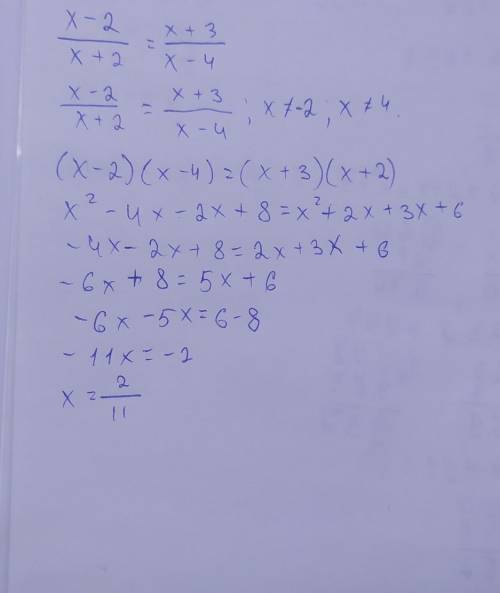 x-2/x+2 = x+3/x-4
x-2/x+2 = x+3/x-4 ; x≠-2 ; x≠4.
(x-2)(x-4)=(x+3)(x+2)
x²-4x-2x+8=x²+2x+3x+6
-4x-2x+8=2x+3x+6
-6x+8=5x+6
-6x-5x=6-8
-11x=-2
x=2/11